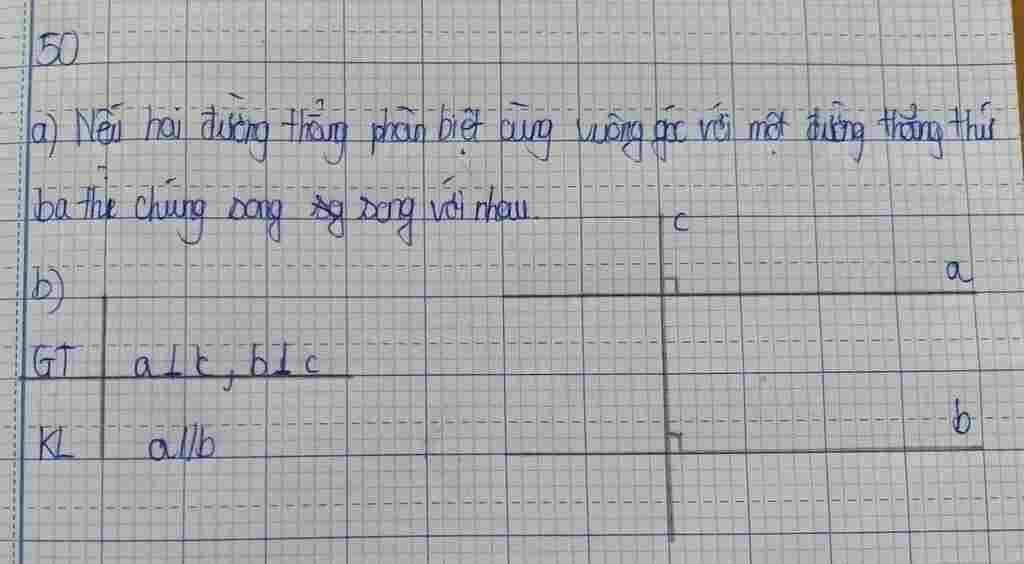 50
a) Nếu hai đường thẳng phân biệt cùng vuông góc với một đường thẳng thứ
ba thì chúng song song với nhau.
c
b)
a
GT a⊥c, b⊥c
KL a//b
b